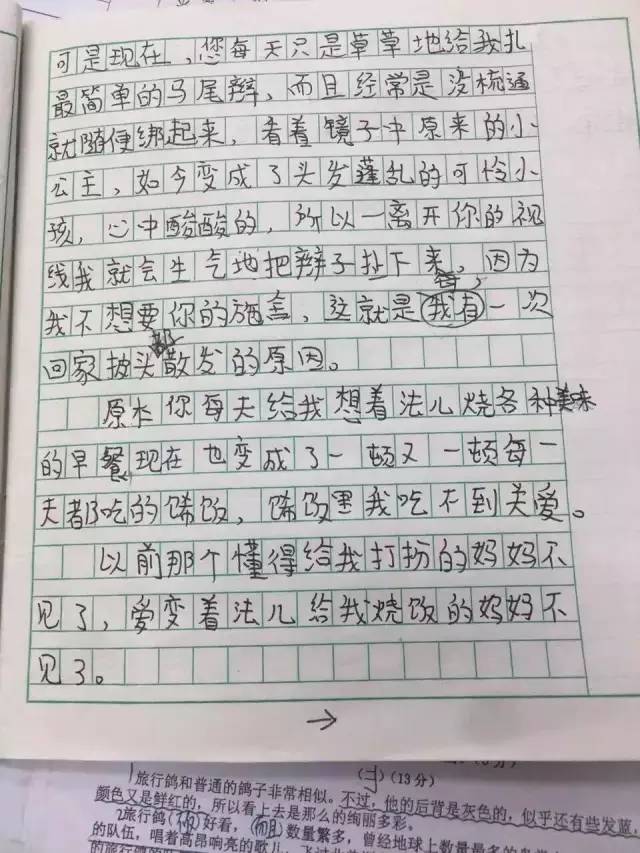 可是现在，您每天只是草草地给我扎
最简单的马尾辫，而且经常是没梳通
就随便绑起来，看着镜子中原来的小
公主，如今变成了头发蓬乱的可怜小
孩，心中酸酸的，所以一离开你的视
线我就会生气地把辫子扯下来，因为
我不想要你的施舍，这就是我有每一次
回家披头散发的原因。
原本你每天给我想着法儿烧各种美味
的早餐现在也变成了一顿又一顿每一
天都吃的馊饭，馊饭里我吃不到关爱。
以前那个懂得给我打扮的妈妈不
见了，爱变着法儿给我烧饭的妈妈不
见了。
→
(13分)
旅行鸽和普通的鸽子非常相似。不过，他的后背是灰色的，似乎还有些发蓝，
颜色又是鲜红的，所以看上去是那么的绚丽多彩。
2旅行鸽(不仅)好看，(而且)数量繁多，曾经地球上数量最多的鸟
的队伍，唱着高昂响亮的歌儿，